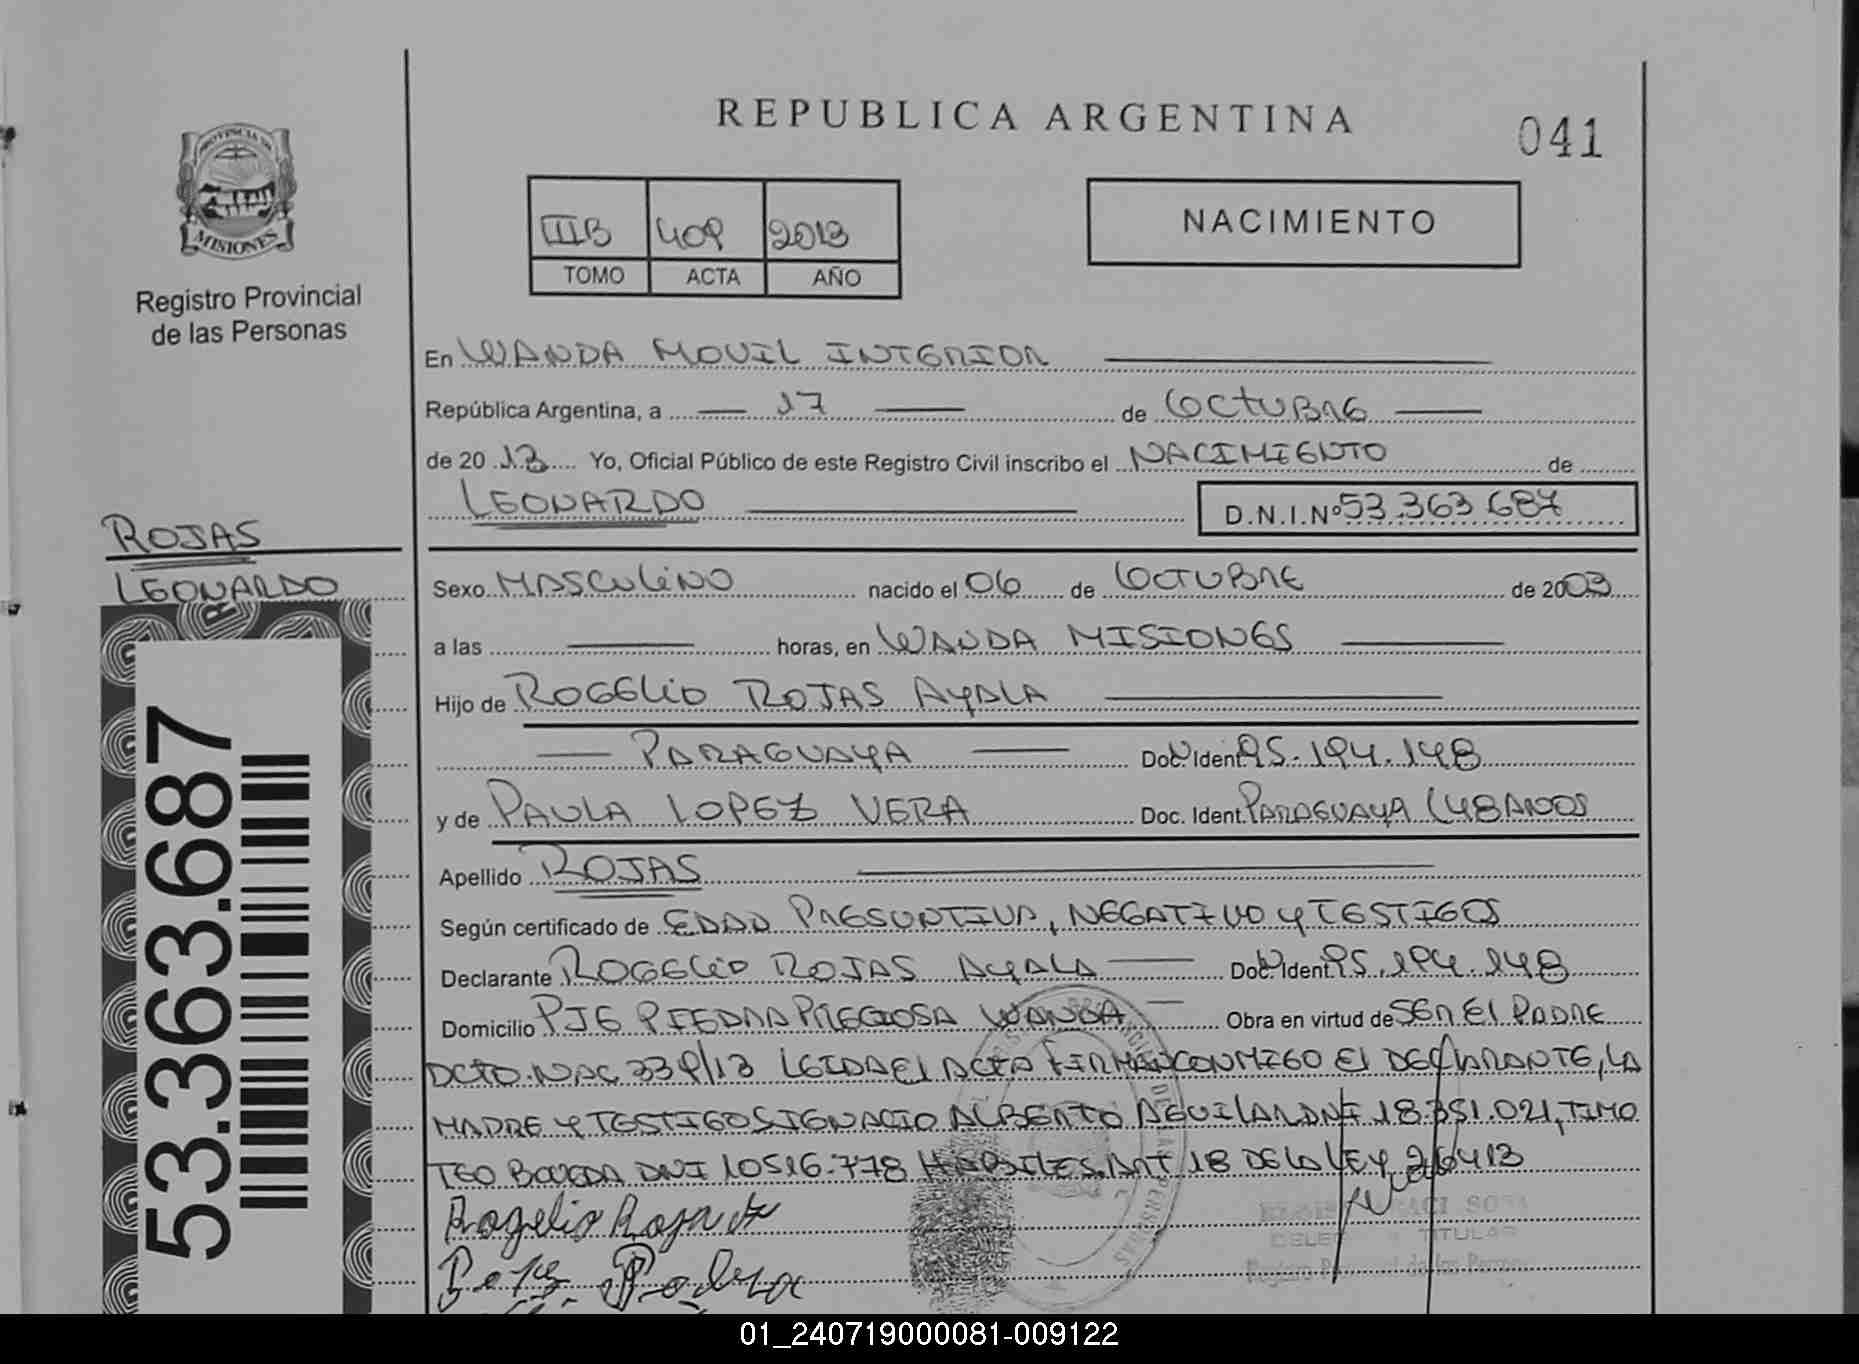 REPUBLICA ARGENTINA
041
PROVINCIA DE
MISIONES
Registro Provincial
de las Personas
IIIB 409 2013
TOMO ACTA AÑO
NACIMIENTO
En WANDA MOVIL INTERIOR
República Argentina, a 17 de OCTUBRE
de 2013 Yo, Oficial Público de este Registro Civil inscribo el NACIMIENTO de
LEONARDO
D.N.I.Nº 53.363.687
ROJAS
LEONARDO
Sexo MASCULINO nacido el 06 de OCTUBRE de 2003
a las horas, en WANDA MISIONES
Hijo de ROGELIO ROJAS AYALA
PARAGUAYA Doc. Ident. 95.194.148
y de PAULA LOPEZ VERA Doc. Ident. PARAGUAYA (48 AÑOS
Apellido ROJAS
Según certificado de EDAD PRESUNTIVA, NEGATIVO Y TESTIGOS
Declarante ROGELIO ROJAS AYALA Doc. Ident. 95.194.148
Domicilio PJE PIEDRA PRECIOSA WANDA Obra en virtud de SER EL PADRE
DCTO.NAC 339/13 LEIDA EL ACTA FIRMAN CONMIGO EL DECLARANTE, LA
MADRE Y TESTIGOS IGNACIO ALBERTO AGUILAR DNI 18.351.021, TIMO
TEO DNI 10516.778 HABILES. ART 18 DE LA LEY 26413
Rogelio Rojas
53.363.687
TITULAR
01_240719000081-009122